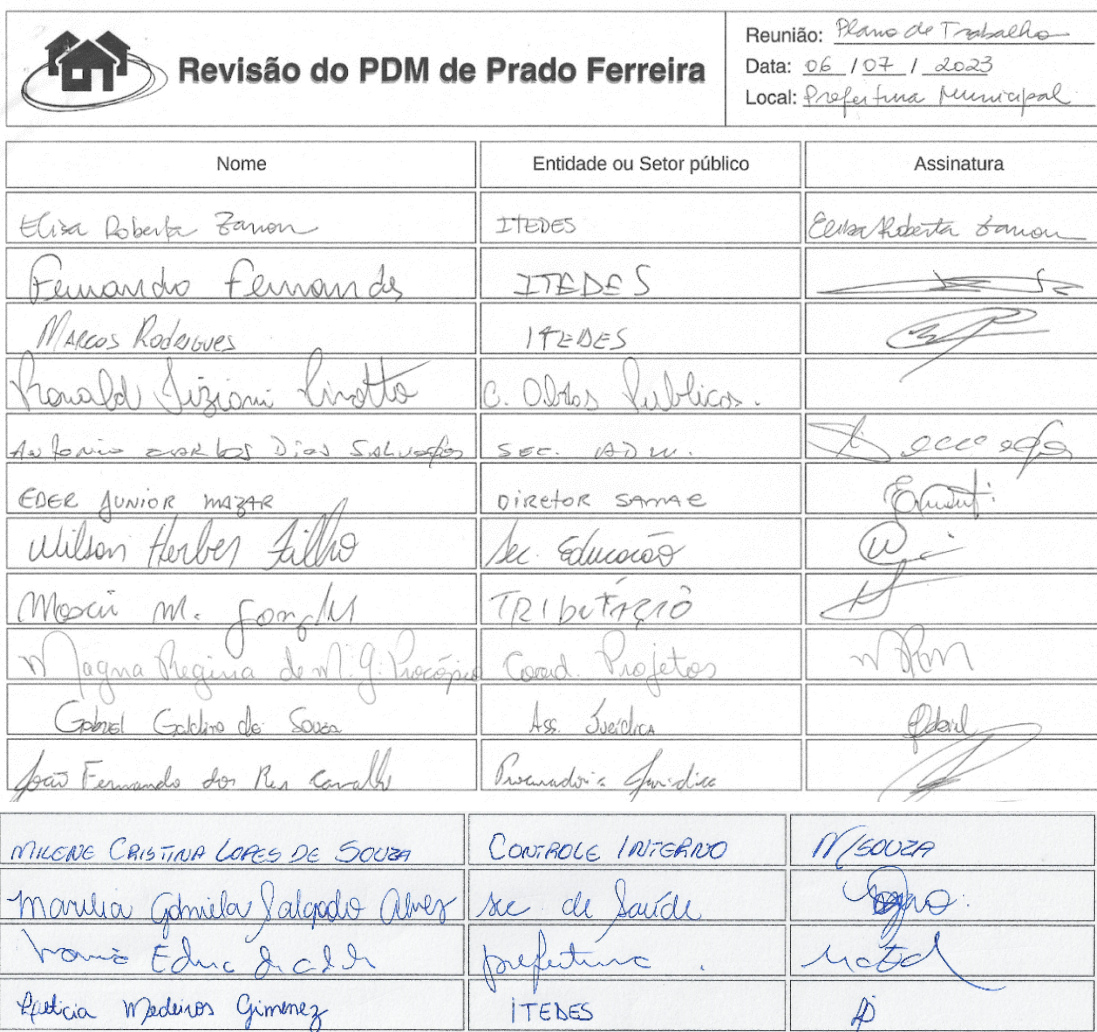 Revisão do PDM de Prado Ferreira
Reunião: Plano de Trabalho
Data: 06 / 07 / 2023
Local: Prefeitura Municipal
Nome Entidade ou Setor público Assinatura
Elisa Roberta Zanon ITEDES Elisa Roberta Zanon
Fernando Fernandes ITEDES
Marcos Rodrigues ITEDES
Ronald Tiziani Pinotto C. Obras Publicas.
Antonio Carlos Dias Salvador SEC. ADM.
EDER JUNIOR MAZAR DIRETOR SAMAE
Wilson Herber Filho Sec. Educação
Moacir M. TRIBUTAÇÃO
Magna Regina de M. G. Procópio Coord. Projetos MRM
Gabriel Galdino de Souza Ass. Jurídica Gabriel
João Fernando dos Reis Carvalho Procuradoria Jurídica
MILENE CRISTINA LOPES DE SOUZA CONTROLE INTERNO M/SOUZA
Marilia Gabriela Salgado Alves Sec de Saúde
prefeitura.
Leticia Medeiros Gimenez ITEDES